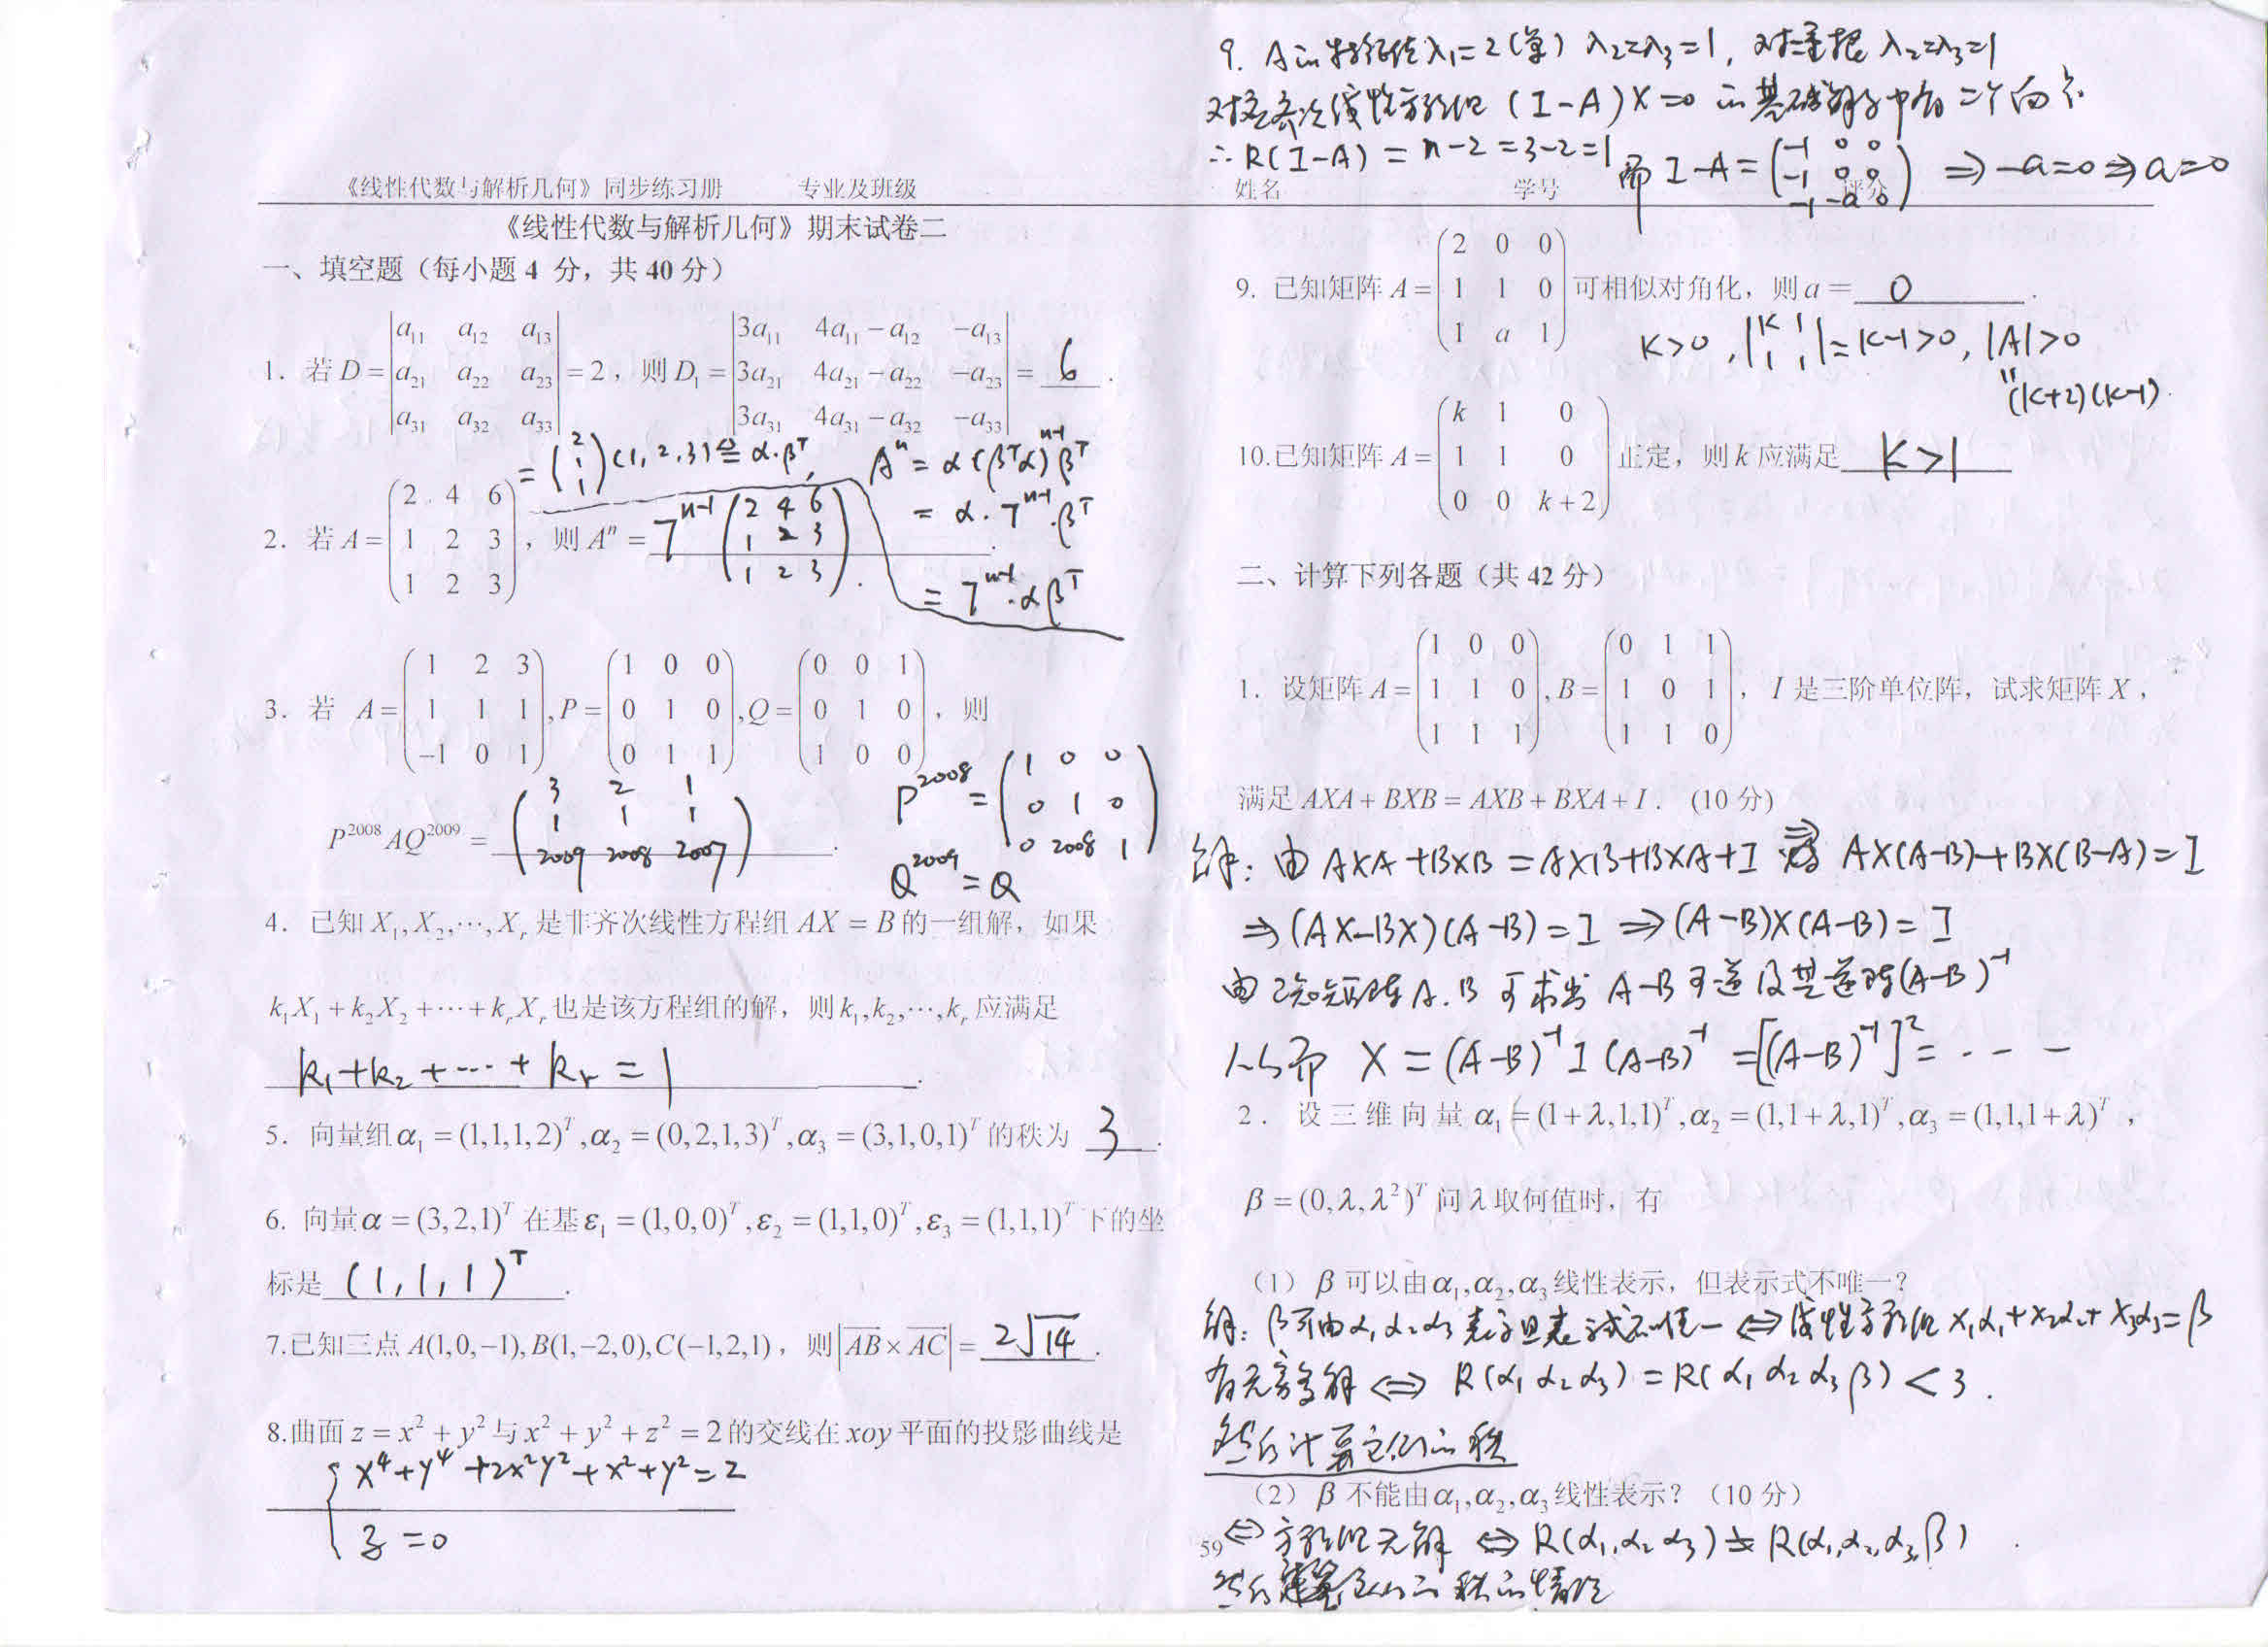 《线性代数与解析几何》同步练习册 专业及班级 姓名 学号 评分
《线性代数与解析几何》期末试卷二
一、填空题（每小题 4 分，共 40 分）
1. 若 D = |a₁₁ a₁₂ a₁₃; a₂₁ a₂₂ a₂₃; a₃₁ a₃₂ a₃₃| = 2，则 D₁ = |3a₁₁ 4a₁₁−a₁₂ −a₁₃; 3a₂₁ 4a₂₁−a₂₂ −a₂₃; 3a₃₁ 4a₃₁−a₃₂ −a₃₃| = 6.
2. 若 A = (2 4 6; 1 2 3; 1 2 3)，则 Aⁿ = 7ⁿ⁻¹ (2 4 6; 1 2 3; 1 2 3).
= (2; 1; 1)(1, 2, 3) ≙ α·βᵀ, Aⁿ = α(βᵀα)ⁿ⁻¹βᵀ
= α·7ⁿ⁻¹·βᵀ
= 7ⁿ⁻¹·αβᵀ
3. 若 A = (1 2 3; 1 1 1; −1 0 1), P = (1 0 0; 0 1 0; 0 1 1), Q = (0 0 1; 0 1 0; 1 0 0)，则
P²⁰⁰⁸AQ²⁰⁰⁹ = (3 2 1; 1 1 1; 2009 2008 2007).
P²⁰⁰⁸ = (1 0 0; 0 1 0; 0 2008 1)
Q²⁰⁰⁹ = Q
4. 已知 X₁, X₂, ⋯, Xᵣ 是非齐次线性方程组 AX = B 的一组解，如果
k₁X₁ + k₂X₂ + ⋯ + kᵣXᵣ 也是该方程组的解，则 k₁, k₂, ⋯, kᵣ 应满足
k₁+k₂+⋯+kᵣ = 1.
5. 向量组 α₁ = (1,1,1,2)ᵀ, α₂ = (0,2,1,3)ᵀ, α₃ = (3,1,0,1)ᵀ 的秩为 3.
6. 向量 α = (3,2,1)ᵀ 在基 ε₁ = (1,0,0)ᵀ, ε₂ = (1,1,0)ᵀ, ε₃ = (1,1,1)ᵀ 下的坐
标是 (1,1,1)ᵀ.
7.已知三点 A(1,0,−1), B(1,−2,0), C(−1,2,1)，则 |AB × AC| = 2√14.
8.曲面 z = x² + y² 与 x² + y² + z² = 2 的交线在 xoy 平面的投影曲线是
{ x⁴+y⁴+2x²y²+x²+y²=2
z=0
9. A的特征值λ₁=2(单) λ₂=λ₃=1, 对二重根 λ₂=λ₃=1
对应齐次线性方程组 (I−A)X=0 的基础解系中有二个向量
∴ R(I−A) = n−2 = 3−2 = 1 而 I−A = (−1 0 0; −1 0 0; −1 −a 0) ⇒ −a=0 ⇒ a=0
9. 已知矩阵 A = (2 0 0; 1 1 0; 1 a 1) 可相似对角化，则 a = 0.
K>0, |K 1; 1 1| = K−1>0, |A|>0
" (K+2)(K−1)
10.已知矩阵 A = (k 1 0; 1 1 0; 0 0 k+2) 正定，则 k 应满足 K>1
二、计算下列各题（共 42 分）
1. 设矩阵 A = (1 0 0; 1 1 0; 1 1 1), B = (0 1 1; 1 0 1; 1 1 0)，I 是三阶单位阵，试求矩阵 X，
满足 AXA + BXB = AXB + BXA + I. (10 分)
解: 由 AXA+BXB=AXB+BXA+I ⇒ AX(A−B)+BX(B−A)=I
⇒ (AX−BX)(A−B)=I ⇒ (A−B)X(A−B)=I
由已知矩阵A.B 可求出 A−B可逆及其逆阵(A−B)⁻¹
从而 X = (A−B)⁻¹ I (A−B)⁻¹ = [(A−B)⁻¹]² = ---
2. 设三维向量 α₁ = (1+λ,1,1)ᵀ, α₂ = (1,1+λ,1)ᵀ, α₃ = (1,1,1+λ)ᵀ，
β = (0,λ,λ²)ᵀ 问 λ 取何值时，有
（1）β 可以由 α₁,α₂,α₃ 线性表示，但表示式不唯一？
解: β可由α₁α₂α₃表示且表示式不唯一 ⇔ 线性方程组 x₁α₁+x₂α₂+x₃α₃=β
有无穷多解 ⇔ R(α₁ α₂ α₃) = R(α₁ α₂ α₃ β) < 3.
然后计算它们的秩
（2）β 不能由 α₁,α₂,α₃ 线性表示？（10 分）
⇔ 方程组无解 ⇔ R(α₁,α₂ α₃) ≠ R(α₁,α₂,α₃,β)
59
然后 的秩的情况